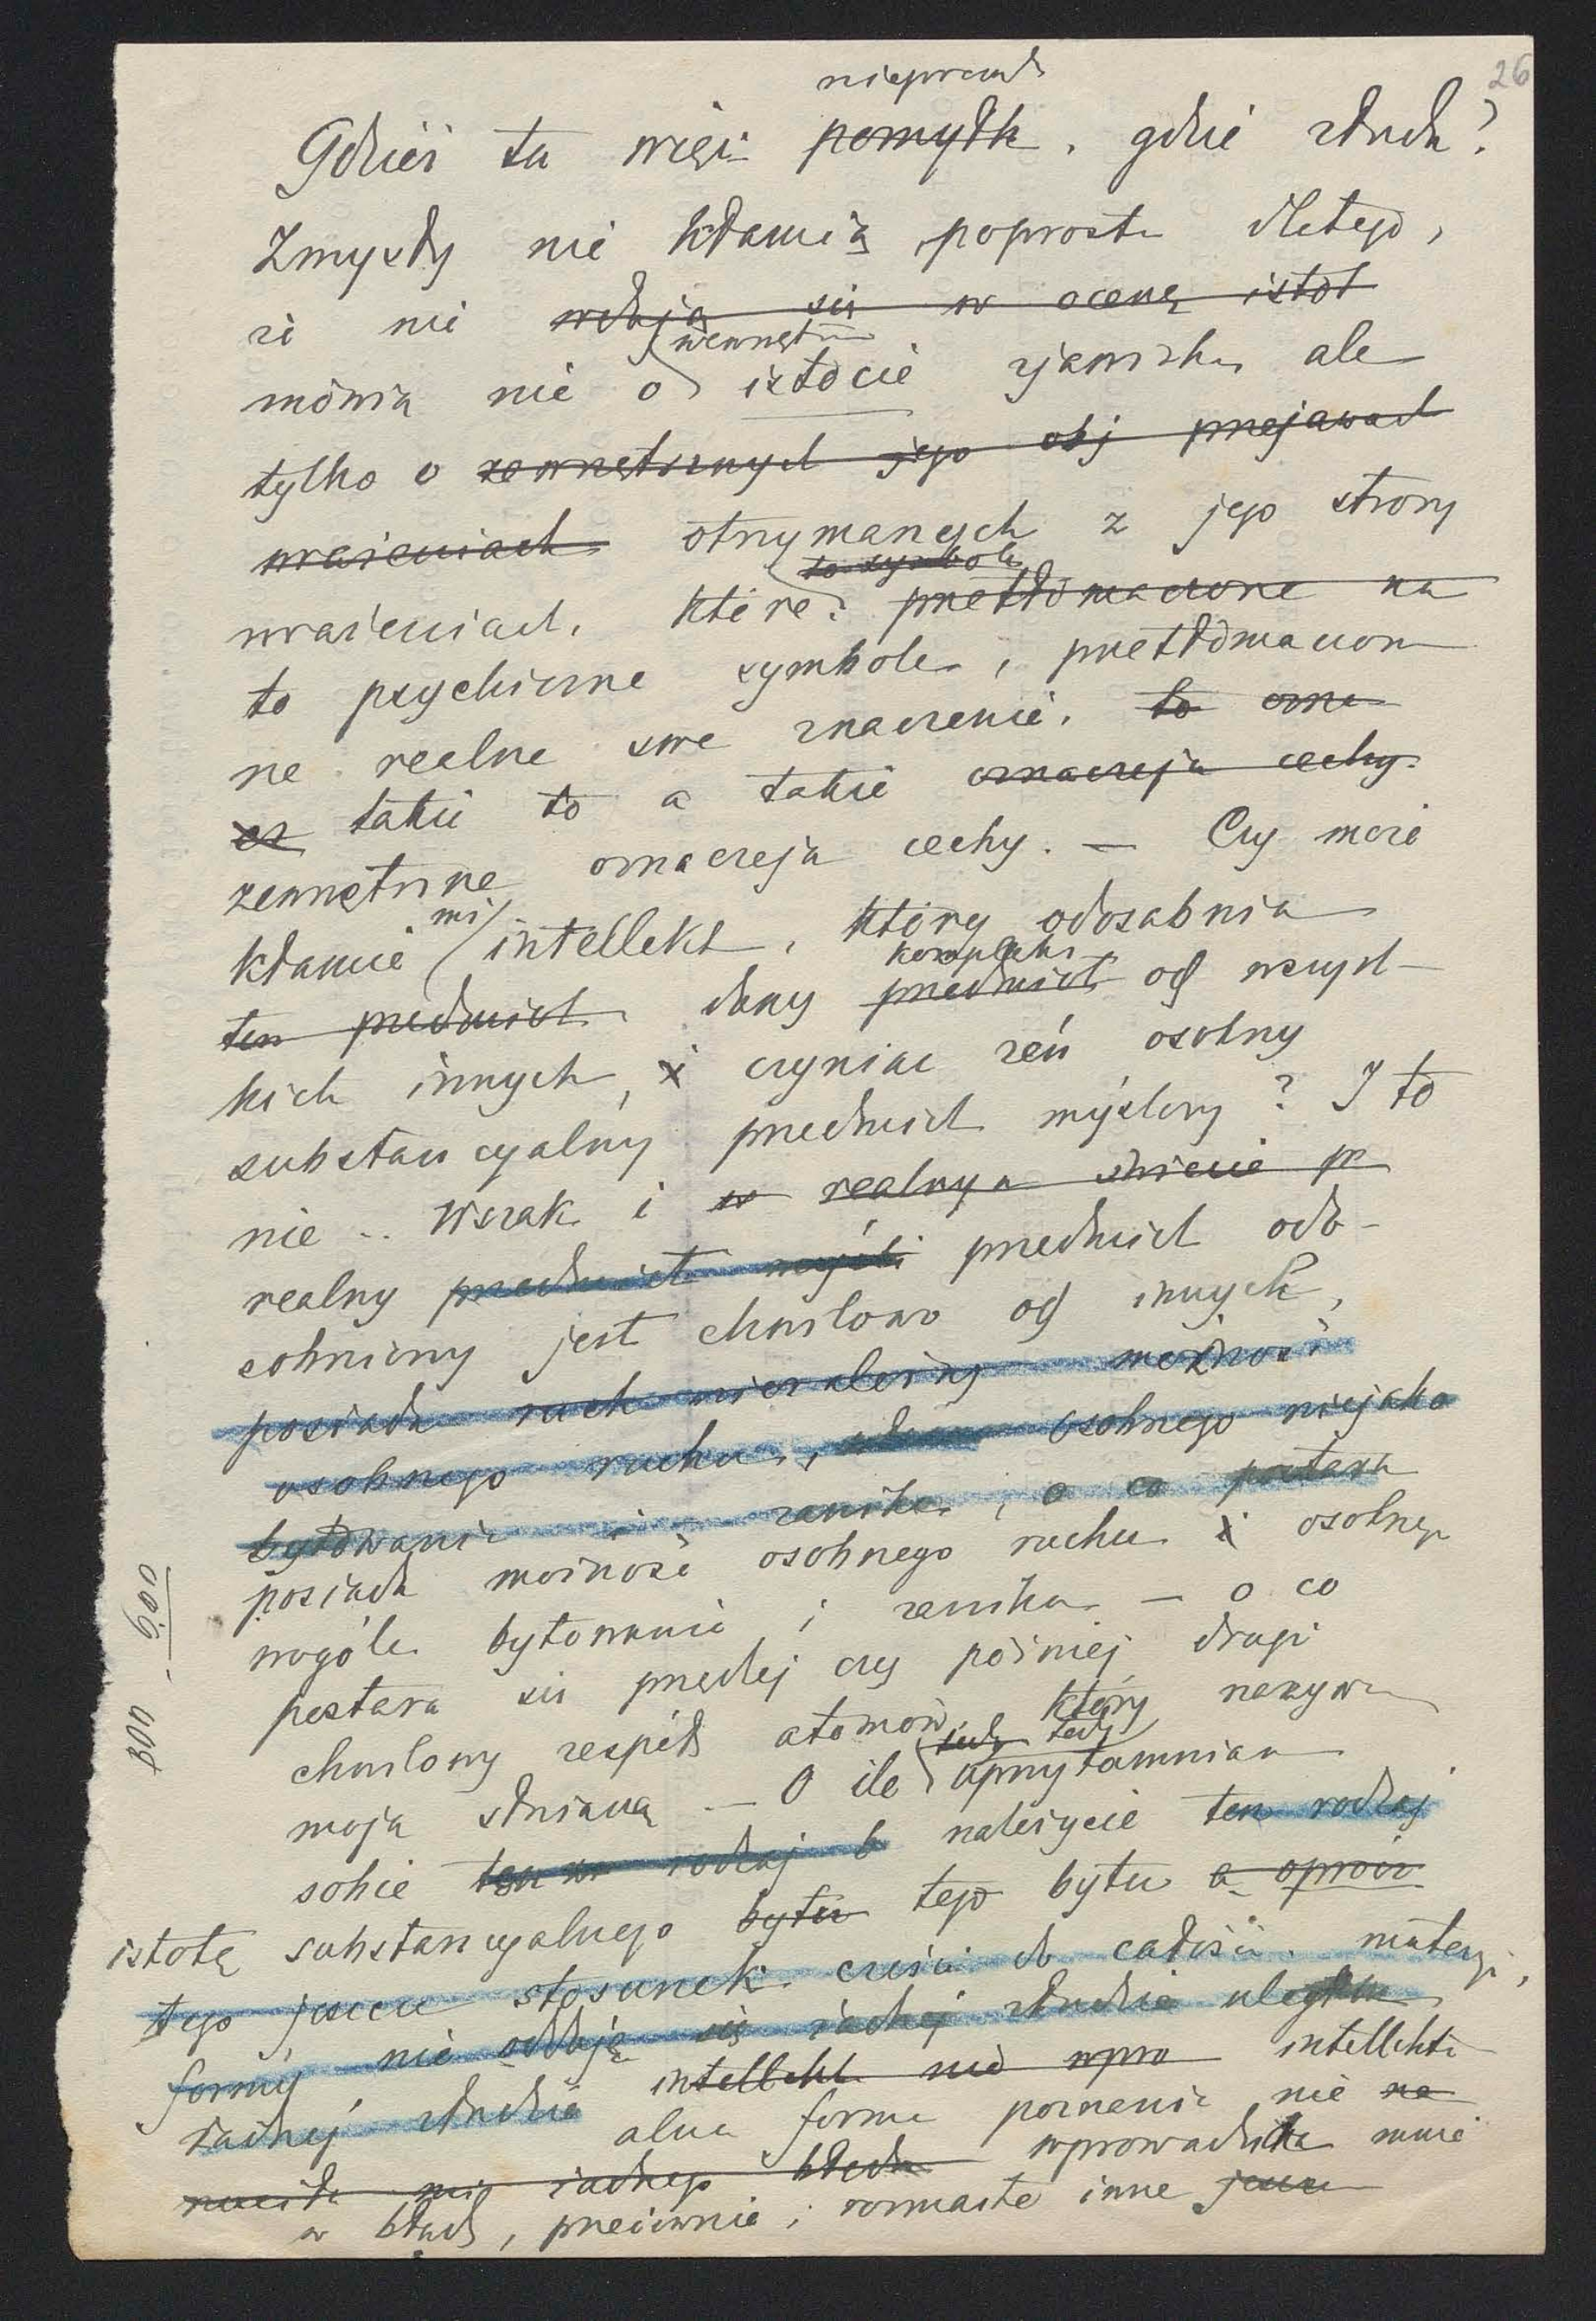 26
nieprawda
Gdzież tu więc pomyłk, gdzie złuda?
Zmysły nie kłamią poprostu dletego,
że nie wdają się w ocenę istot
wewnętrzn
mówią nie o istocie zjawiska ale
tylko o zewnętrznych jego obj przejawach
wrażeniach otrzymanych z jego strony
to symbole
wrażeniach, które przetłómaczone na
to psychiczne symbole, przetłómaczon
ne realne swe znaczenie, to ozna
cz takie to a takie oznaczeją cechy
zewnętrzne oznaczeją cechy. — Czy może
mi
kłamie intellekt, który odosabnia
kompleks
ten przedmiot dany przedmiot od wszyst-
kich innych, i czyniąc zeń osobny
substancyalny przedmiot myślowy? I to
nie .. Wszak i w realnym świecie pr
realny przedmiot myśli przedmiot odo-
sobniony jest chwilowo od innych,
posiada ruch niezależny możność
osobnego ruchu, osobnego niejako
bytowania i zanika, o co postara
posiada możność osobnego ruchu i osobnego
wogóle bytowania i zanika — o co
postara się prędzej czy później drugi
chwilowy zespół atomów, który nazywa
moją śmiercią — O ile tedy uprzytamniam
sobie ten rodzaj b należycie ten rodzaj
istotę substancyalnego bytu tego bytu a oprócz
tego jeszcze stosunek części do całości materyi,
formy, nie oddaję się żadnej złudzie uległem
żadnej złudzie intellekt nie wpro intellektu
alna forma poznania nie na
raziła mię żadnego błędu wprowadziła mnie
w błąd, przeciwnie, rozmaite inne jeszcze
800 - 600